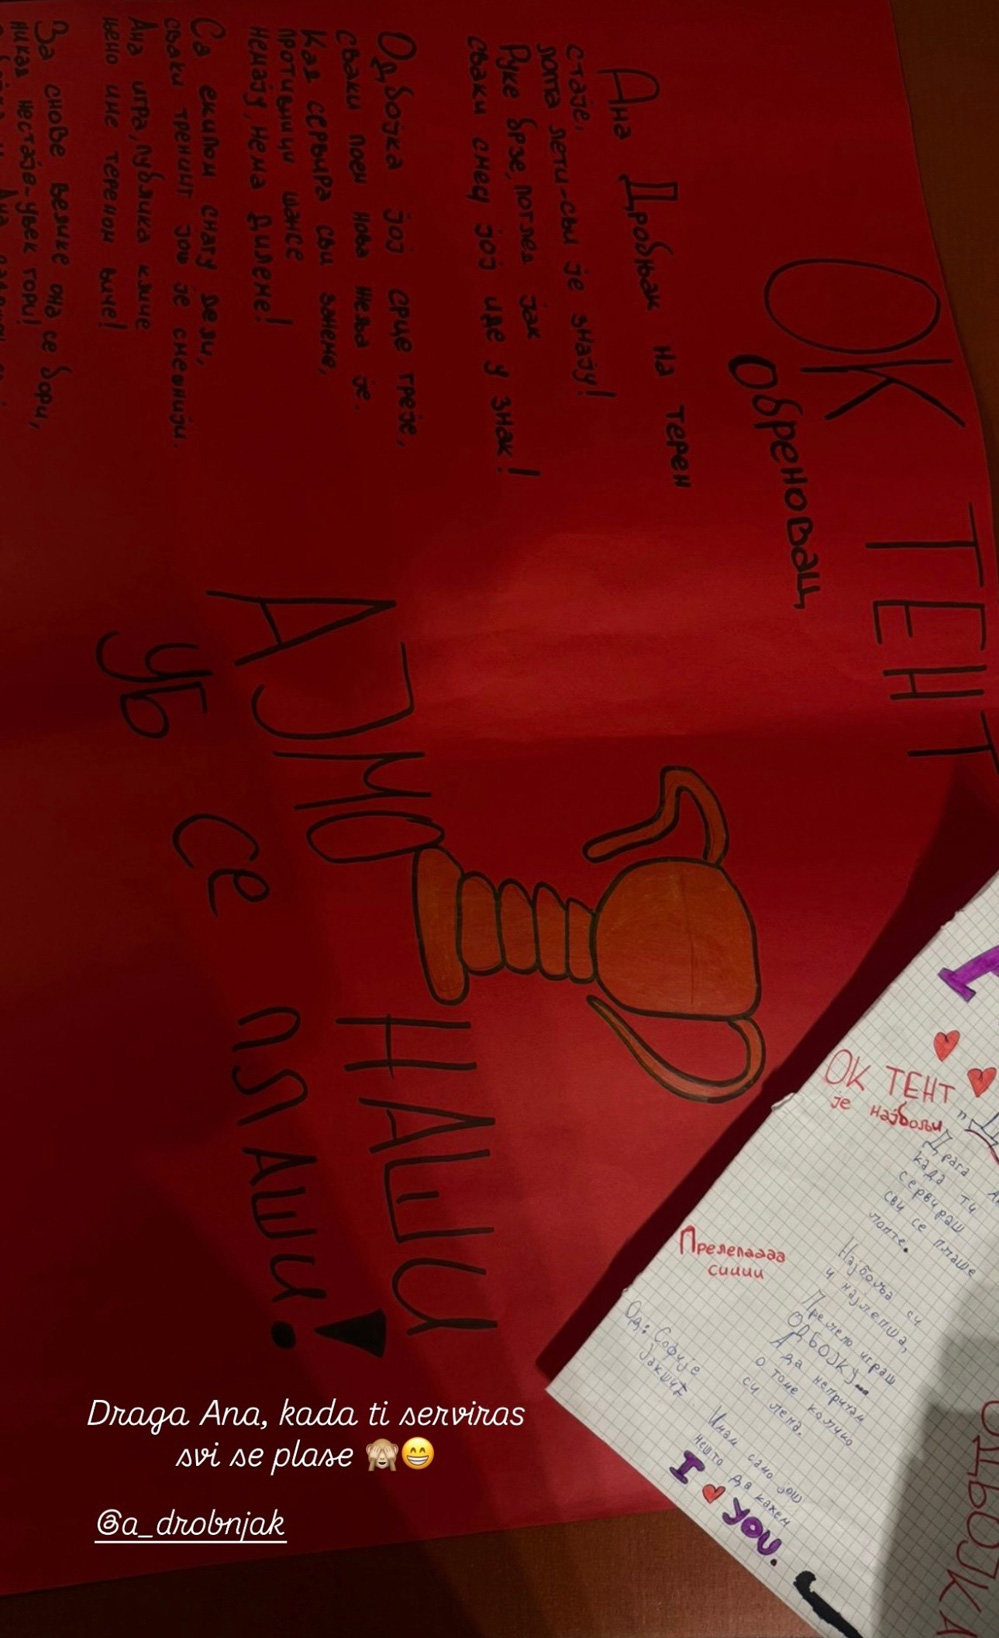 ОК ТЕНТ
Обреновац
Ана Дробњак на терен
стаје,
лопта лети-сви је знају!
Руке брзе, поглед јак
сваки смеч јој иде у знак!
Одбојка јој срце греје,
сваки поен нова нежа је.
Кад сервира сви занеме,
противници шансе
немају, нема дилеме!
Са екипом снагу дели,
сваки тренинг још је смешнији.
Ана игра, публика кличе
њено име тереном виче!
За снове велике она се бори,
никад нестаје-увек гори!
АЈМО НАШИ
УБ се плаши!
ОК ТЕНТ
је најбољи
Драга
када ти
сервираш
сви се плаше
лопте.
Најбоља си
и најлепша,
Прелепо играш
ОДБОЈКУ...
А да непричам
о томе колико
си лепа.
Имам само још
нешто да кажем
I ❤ YOU.
Прелепаааа
сииии
Од: Софије
Јакшић
ОДБОЈКА
Draga Ana, kada ti serviras
svi se plase 🙈😁
@a_drobnjak